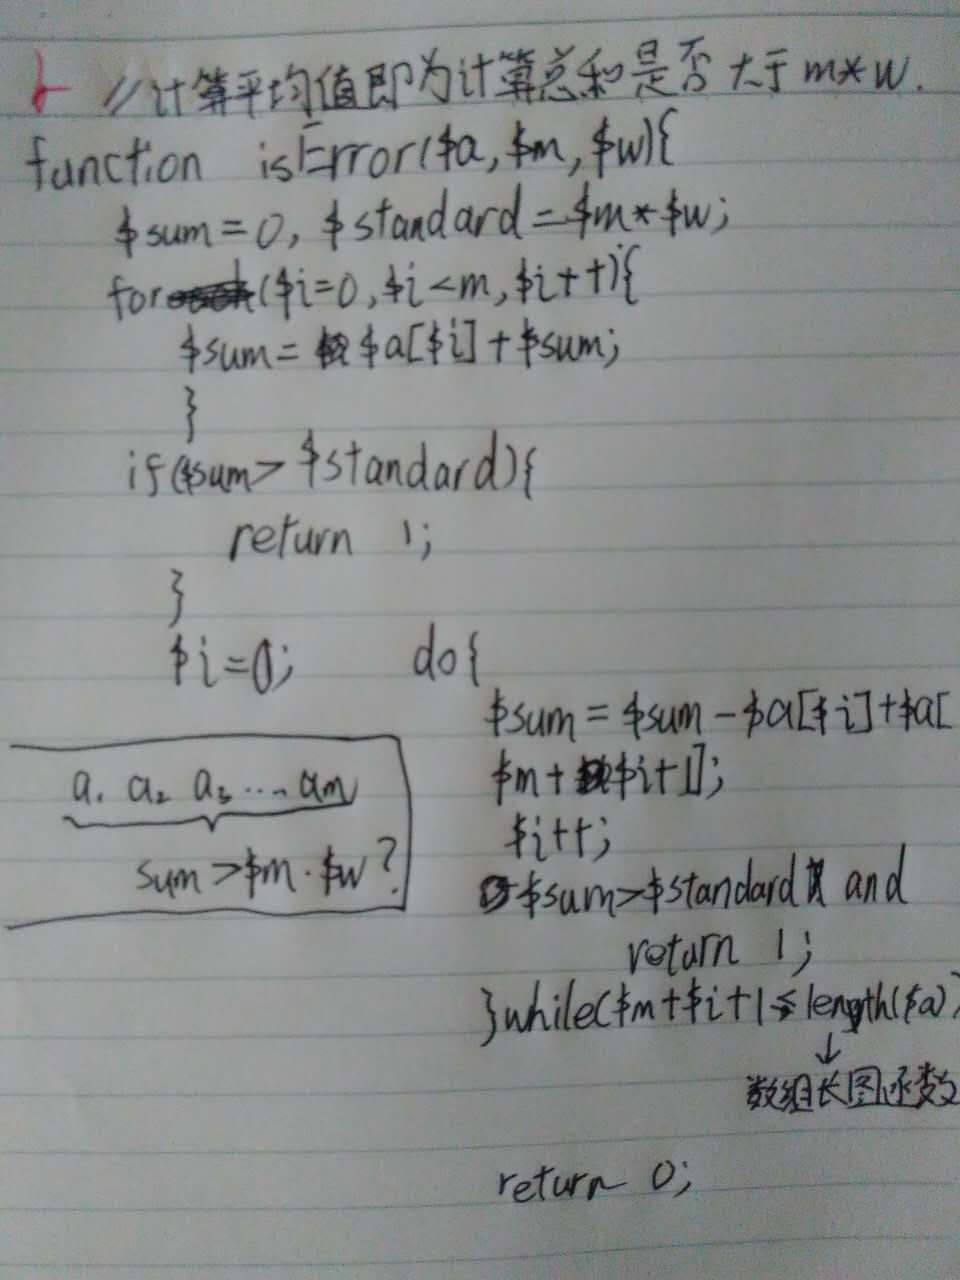 //计算平均值即为计算总和是否大于m*w.
function isError($a,$m,$w){
$sum=0,$standard=$m*$w;
for($i=0,$i<m,$i++){
$sum=$a[$i]+$sum;
}
if($sum>$standard){
return 1;
}
$i=0; do{
$sum=$sum-$a[$i]+$a[
$m+$i+1];
$i++;
$sum>$standard and
return 1;
}while($m+$i+1≤length($a)
↓
数组长图函数
return 0;
a1 a2 a3 .... am
sum>$m·$w?